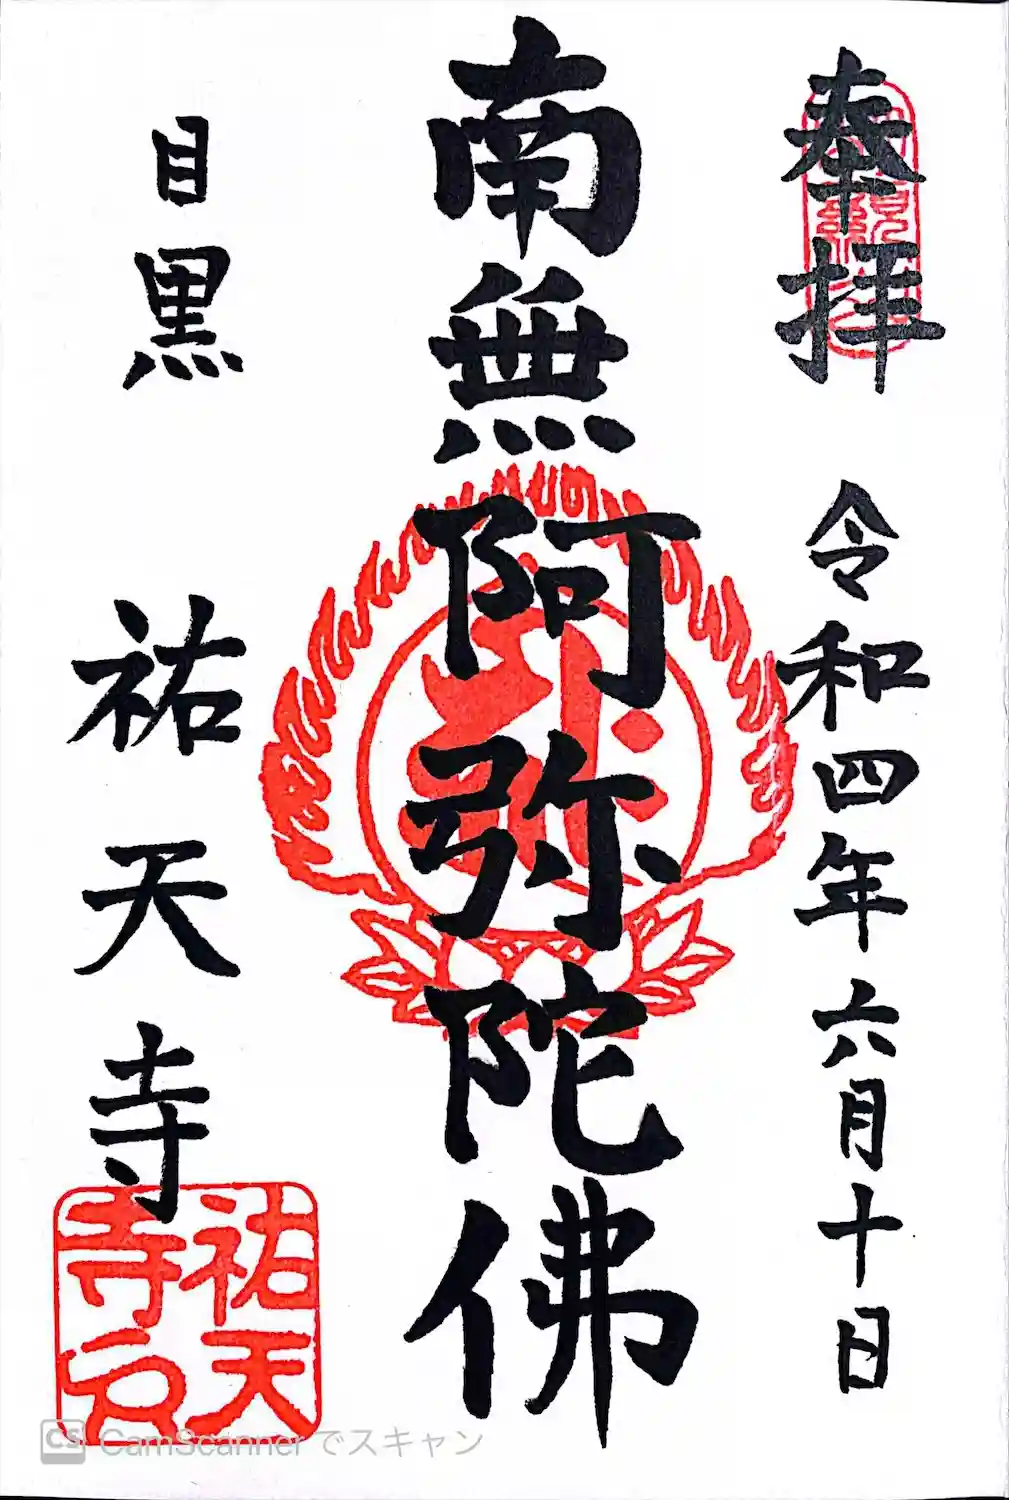 奉拝
令和四年六月十日
南無阿弥陀佛
目黒
祐天寺
祐天
寺
CS CamScanner でスキャン